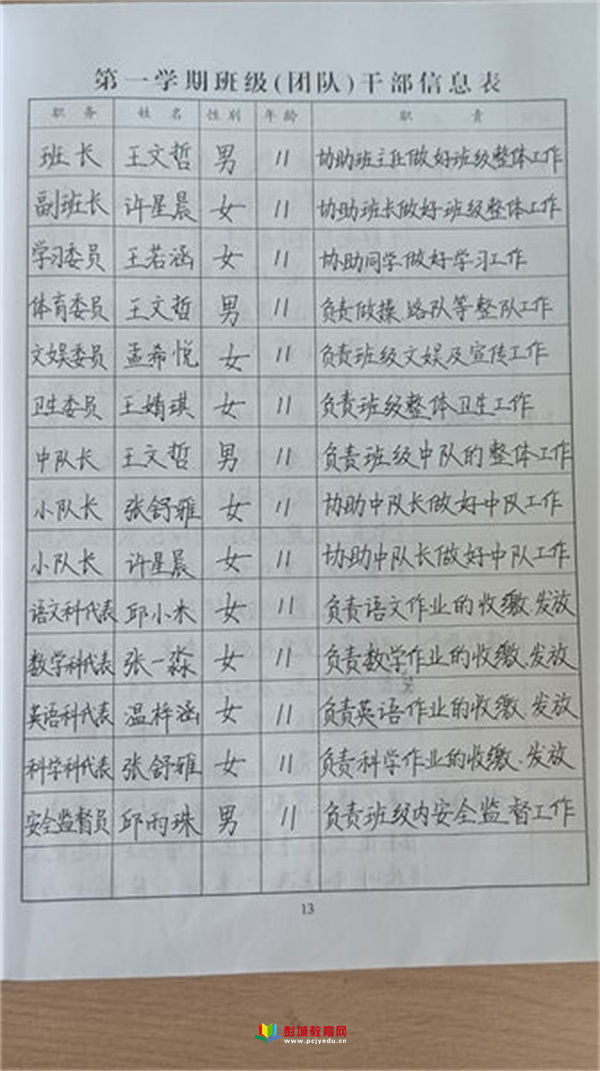 第一学期班级(团队)干部信息表
职 务 姓 名 性别 年龄 职 责
班长 王文哲 男 11 协助班主任做好班级整体工作
副班长 许星晨 女 11 协助班长做好班级整体工作
学习委员 王若涵 女 11 协助同学做好学习工作
体育委员 王文哲 男 11 负责做操、路队等整队工作
文娱委员 孟希悦 女 11 负责班级文娱及宣传工作
卫生委员 王婧琪 女 11 负责班级整体卫生工作
中队长 王文哲 男 11 负责班级中队的整体工作
小队长 张舒雅 女 11 协助中队长做好中队工作
小队长 许星晨 女 11 协助中队长做好中队工作
语文科代表 邱小米 女 11 负责语文作业的收缴、发放
数学科代表 张一淼 女 11 负责数学作业的收缴、发放
英语科代表 温梓涵 女 11 负责英语作业的收缴、发放
科学科代表 张舒雅 女 11 负责科学作业的收缴、发放
安全监督员 邱雨珠 男 11 负责班级内安全监督工作
13
彭城教育网
www.pcjyedu.cn